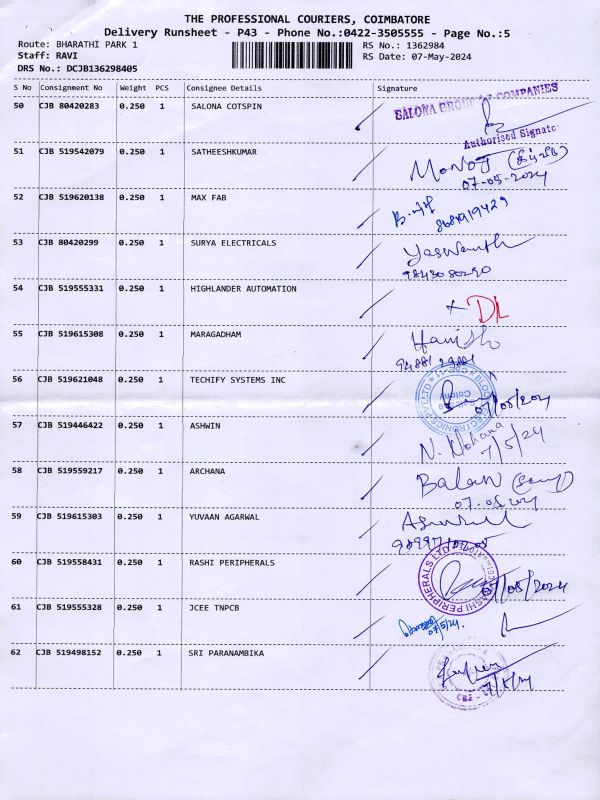 THE PROFESSIONAL COURIERS, COIMBATORE
Delivery Runsheet - P43 - Phone No.:0422-3505555 - Page No.:5
Route: BHARATHI PARK 1
Staff: RAVI
DRS No.: DCJB136298405
RS No.: 1362984
RS Date: 07-May-2024
S No Consignment No Weight PCS Consignee Details Signature
50 CJB 80420283 0.250 1 SALONA COTSPIN
SALONA GROUP OF COMPANIES
Authorised Signato
51 CJB 519542079 0.250 1 SATHEESHKUMAR
Manoj
07-05-2024
52 CJB 519620138 0.250 1 MAX FAB
53 CJB 80420299 0.250 1 SURYA ELECTRICALS
Yaswanth
9843080290
54 CJB 519555331 0.250 1 HIGHLANDER AUTOMATION
DL
55 CJB 519615308 0.250 1 MARAGADHAM
56 CJB 519621048 0.250 1 TECHIFY SYSTEMS INC
07/05/2024
57 CJB 519446422 0.250 1 ASHWIN
7/5/24
58 CJB 519559217 0.250 1 ARCHANA
Balan
07.05.2024
59 CJB 519615303 0.250 1 YUVAAN AGARWAL
60 CJB 519558431 0.250 1 RASHI PERIPHERALS
RASHI PERIPHERALS LTD
07/05/2024
61 CJB 519555328 0.250 1 JCEE TNPCB
07/5/24.
62 CJB 519498152 0.250 1 SRI PARANAMBIKA